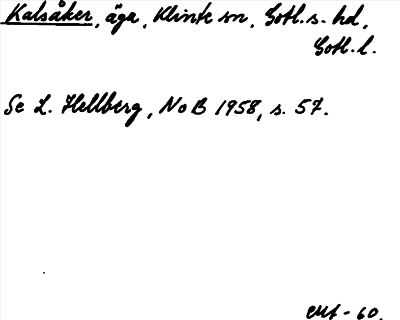 Kalsåker, äga, Klinte sn, Gotl. s. hd,
Gotl. l.
Se L. Hellberg, NoB 1958, s. 57.
-60.